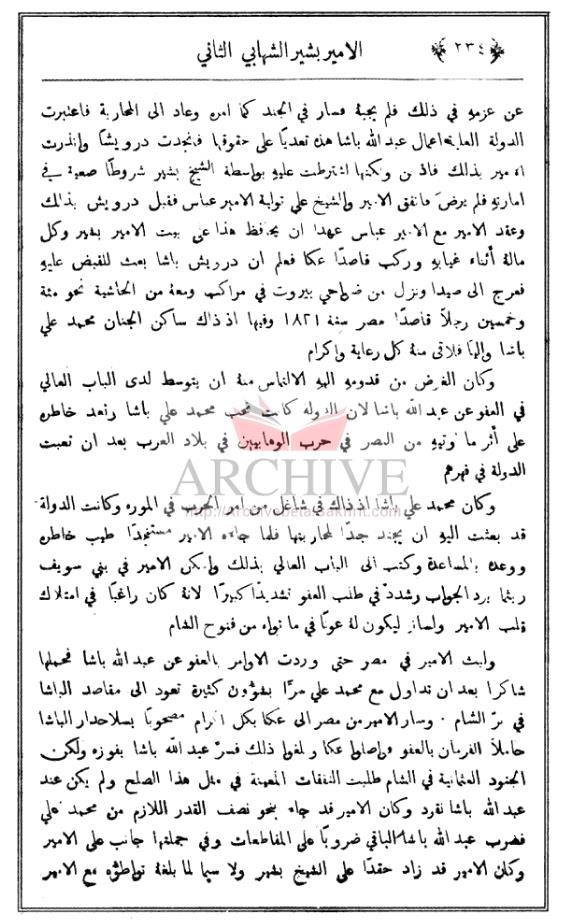 ٢٣٤
الامير بشير الشهابي الثاني
عن عزمهِ في ذلك فلم يجبهُ فسار في الجند كما امره وعاد الى المحاربة فاعتبرت
الدولة العلية اعمال عبد الله باشا هذه تعديًا على حقوقها فانجدت درويشًا وانذرت
الامير بذلك فاذعن ولكنها اشترطت عليهِ بواسطة الشيخ بشير شروطًا صعبة في
امارتهِ فلم يرضَ فاتفق الامير والشيخ على تولية الامير عباس فقبل درويش بذلك
وعقد الامير مع الامير عباس عهدًا ان يحافظ هذا على بيت الامير بشير وكل
مالهُ أثناء غيابهِ وركب قاصدًا عكا فعلم ان درويش باشا بعث للقبض عليهِ
فعرج الى صيدا ونزل من ضواحي بيروت في مراكب ومعهُ من الحاشية نحو مئة
وخمسين رجلًا قاصدًا مصر سنة ١٨٢١ وفيها اذ ذاك ساكن الجنان محمد علي
باشا واليًا فلاقى منهُ كل رعاية واكرام
وكان الغرض من قدومهِ اليهِ الالتماس منهُ ان يتوسط لدى الباب العالي
في العفو عن عبد الله باشا لان الدولة كانت تحب محمد علي باشا وتعد خاطره
على أثر ما اوتيهِ من النصر في حرب الوهابيين في بلاد العرب بعد ان تعبت
الدولة في قهرهم
ARCHIVE
http://archivebeta.Sakhrit.com
وكان محمد علي باشا اذ ذاك في شاغل من امر الحرب في الموره وكانت الدولة
قد بعثت اليهِ ان يجند جندًا لمحاربتها فلما جاءه الامير مستنجدًا طيب خاطره
ووعده بالمساعدة وكتب الى الباب العالي بذلك واسكن الامير في بني سويف
ريثما يرد الجواب وشدد في طلب العفو تشديدًا كبيرًا لانهُ كان راغبًا في امتلاك
قلب الامير ولسانهِ ليكون لهُ عونًا في ما نواه من فتوح الشام
ولبث الامير في مصر حتى وردت الاوامر بالعفو عن عبد الله باشا فحملها
شاكرًا بعد ان تداول مع محمد علي سرًا بشؤون كثيرة تعود الى مقاصد الباشا
في برّ الشام . وسار الامير من مصر الى عكا بكل اكرام مصحوبًا بسلاحدار الباشا
حاملًا الفرمان بالعفو وأصلوا عكا وبلغوا ذلك فسرّ عبد الله باشا بفوزه ولكن
الجنود العثمانية في الشام طلبت النفقات المعينة في مثل هذا الصلح ولم يكن عند
عبد الله باشا نقود وكان الامير قد جاء بنحو نصف القدر اللازم من محمد علي
فضرب عبد الله باشا الباقي ضروبًا على المقاطعات وفي جملتها جانب على الامير
وكان الامير قد زاد حقدًا على الشيخ بشير ولا سيما لما بلغهُ تواطؤه مع الامير